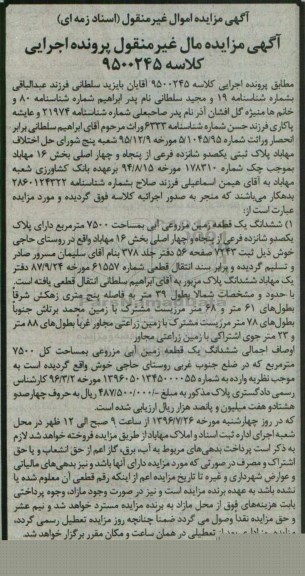 آگهی مزایده اموال غیرمنقول (اسناد زمه ای)
آگهی مزایده مال غیرمنقول پرونده اجرایی
کلاسه ۹۵۰۰۲۴۵
مطابق پرونده اجرایی کلاسه ۹۵۰۰۲۴۵ آقایان بایزید سلطانی فرزند عبدالباقی
بشماره شناسنامه ۱۹ و مجید سلطانی نام پدر ابراهیم شماره شناسنامه ۸۰ و
خانم ها منیژه گل افشان آذر نام پدر صاحبعلی شماره شناسنامه ۲۱۹۷۴ و عایشه
پاکاری فرزند حسن شماره شناسنامه ۶۳۳۳ وراث مرحوم آقای ابراهیم سلطانی برابر
انحصار وراثت شماره ۵/۱۰۴۵/۹۵ مورخه ۹۵/۱۲/۹ شعبه پنج شورای حل اختلاف
مهاباد پلاک ثبتی یکصدو شانزده فرعی از پنجاه و چهار اصلی بخش ۱۶ مهاباد
بموجب چک شماره ۱۷۸۳۱۰ مورخه ۹۴/۸/۱۵ برعهده بانک کشاورزی شعبه
مهاباد به آقای هیمن اسماعیلی فرزند صلاح بشماره شناسنامه ۲۸۶۰۱۲۴۳۲۲
بدهکار می‌باشند که منجر به صدور اجرائیه کلاسه فوق گردیده و مورد مزایده
عبارت است از:
۱) ششدانگ یک قطعه زمین مزروعی آبی بمساحت ۷۵۰۰ مترمربع دارای پلاک
یکصدو شانزده فرعی از پنجاه و چهار اصلی بخش ۱۶ مهاباد واقع در روستای حاجی
خوش ذیل ثبت ۷۲۴۳ صفحه ۵۶ دفتر جلد ۳۷۸ بنام آقای سلیمان مسرور صادر
و تسلیم گردیده و برابر سند انتقال قطعی شماره ۶۱۵۵۷ مورخه ۸۷/۹/۲۴ دفتر
یک مهاباد ششدانگ پلاک مزبور به آقای ابراهیم سلطانی انتقال قطعی یافته است.
با حدود و مشخصات شمالا بطول ۳۹ متر به فاصله پنج متری زهکش شرقاً
بطولهای ۶۱ متر و ۶۸ متر مرزیست مشترک با زمین محمد برتاش جنوباً
بطول‌های ۷۸ متر مرزیست مشترک با زمین زراعتی مجاور غرباً بطول‌های ۸۸ متر
و ۲۳ متر جوی اشتراکی با زمین زراعتی مجاور.
اوصاف اجمالی ششدانگ یک قطعه زمین آبی مزروعی بمساحت کل ۷۵۰۰
مترمربع که در ضلع جنوب غربی روستای حاجی خوش واقع گردیده است به
موجب نظریه وارده به شماره ۱۳۹۶۰۵۰۱۳۴۵۰۰۰۰۵۵ مورخه ۹۶/۳/۲ کارشناس
رسمی دادگستری پلاک مذکور به مبلغ ۴۸۷/۵۰۰/۰۰۰ ریال به حروف چهارصدو
هشتادو هفت میلیون و پانصد هزار ریال ارزیابی شده است.
که در روز چهارشنبه مورخه ۱۳۹۶/۷/۲۶ از ساعت ۹ صبح الی ۱۲ ظهر در محل
شعبه اجرای اداره ثبت اسناد و املاک مهاباد از طریق مزایده فروخته خواهد شد لازم
به ذکر است پرداخت بدهی‌های مربوط به آب، برق، گاز اعم از حق انشعاب و یا حق
اشتراک و مصرف در صورتی که مورد مزایده دارای آنها باشد و نیز بدهی‌های مالیاتی
و عوارض شهرداری و غیره تا تاریخ مزایده اعم از اینکه رقم قطعی آن معلوم شده یا
نشده باشد به عهده برنده مزایده است و نیز در صورت وجود مازاد، وجوه پرداختی
بابت هزینه‌های فوق از محل مازاد به برنده مزایده مسترد خواهد شد و نیم عشر
و حق مزایده نقدا وصول می گردد ضمنا چنانچه روز مزایده تعطیل رسمی گردد،
روز بعد از تعطیلی در همان ساعت و مکان مقرر برگزار خواهد شد.